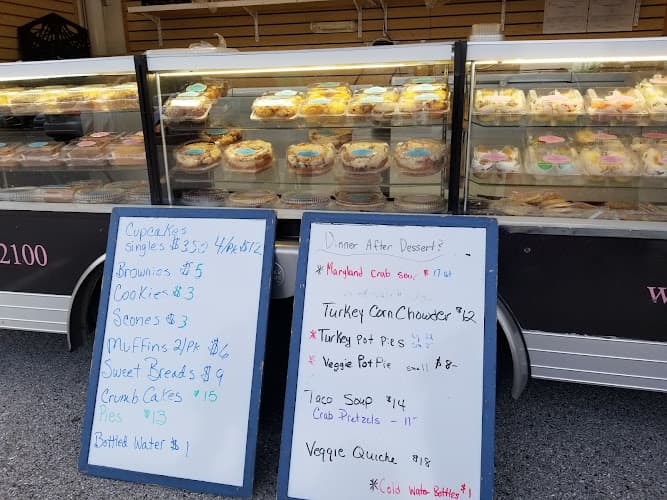 2100
Cupcakes
singles $3.50 4/Pk $12
Brownies $5
Cookies $3
Scones $3
Muffins 2/Pk $6
Sweet Breads $9
Crumb Cakes $15
Pies $13
Bottled Water $1
Dinner After Dessert?
*Maryland Crab Soup $17
Turkey Corn Chowder $12
*Turkey Pot Pies
* Veggie Pot Pie small $8-
Taco Soup $14
Crab Pretzels - 11-
Veggie Quiche $18
*Cold Water Bottles $1
W